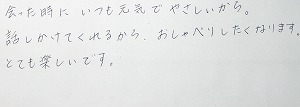 会った時に いつも元気で やさしいから。
話しかけてくれるから、おしゃべりしたくなります。
とても楽しいです。